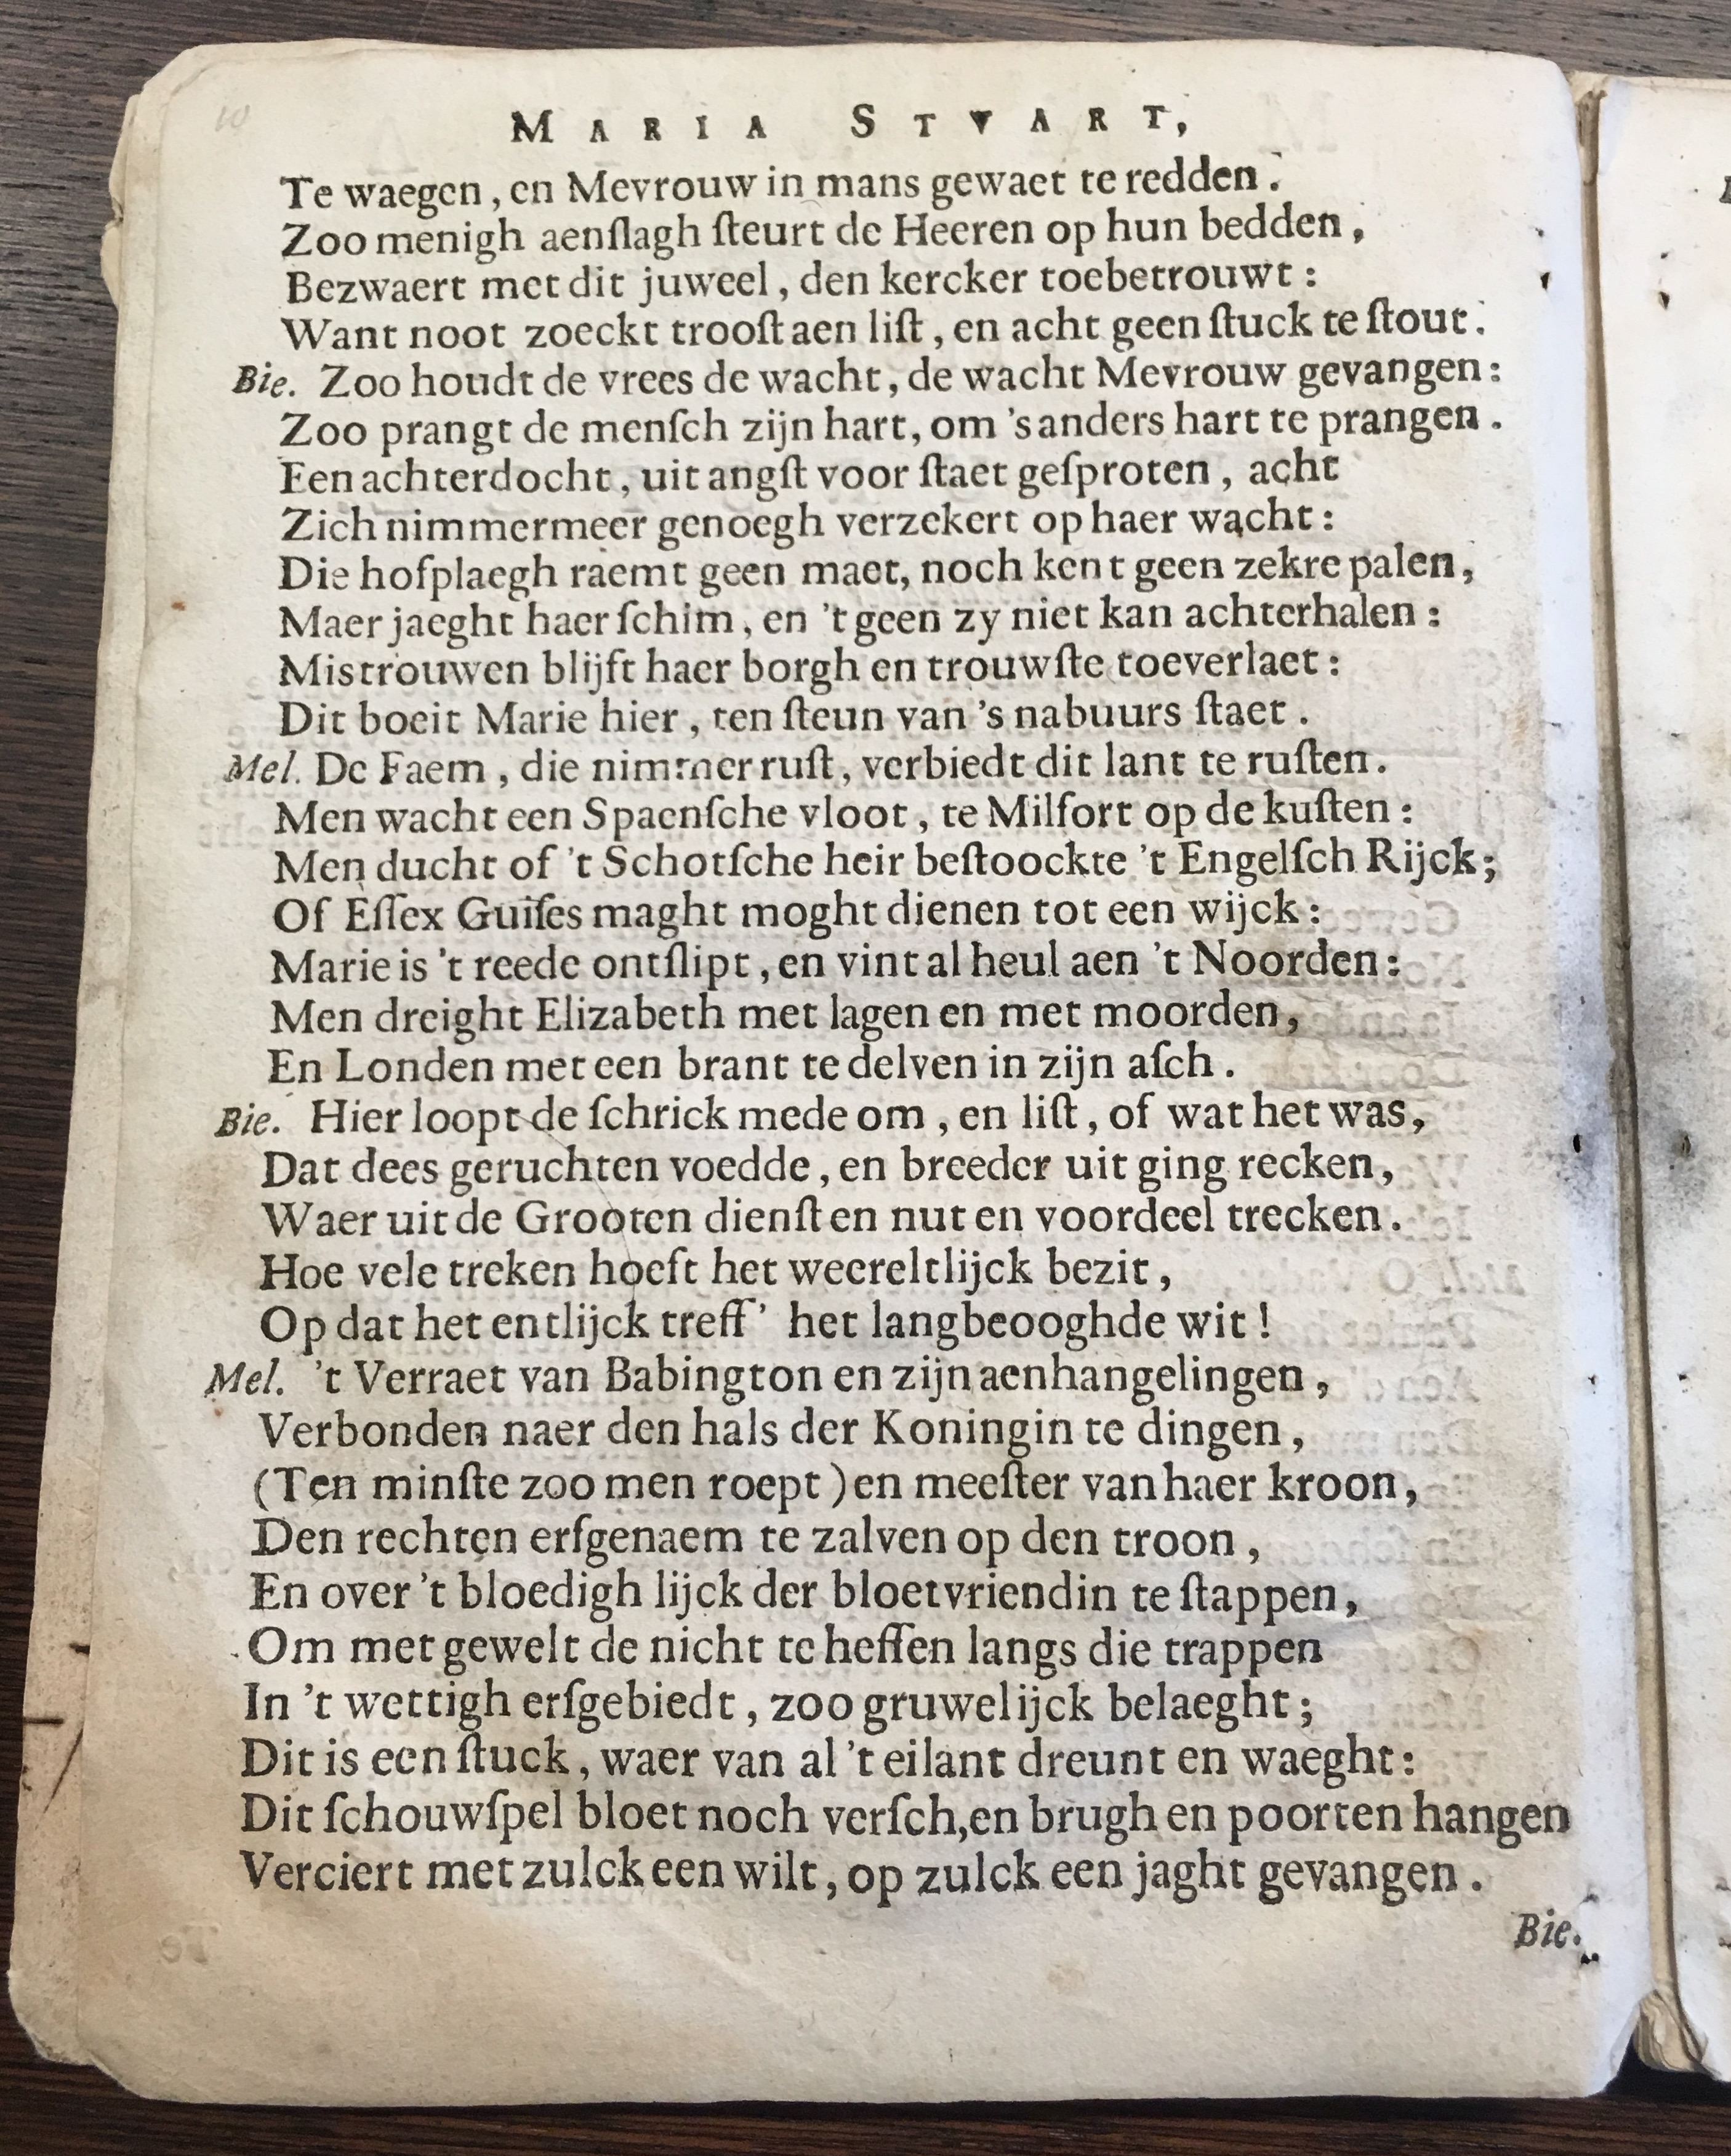 10
MARIA STVART,
Te waegen, en Mevrouw in mans gewaet te redden.
Zoo menigh aenſlagh ſteurt de Heeren op hun bedden,
Bezwaert met dit juweel, den kercker toebetrouwt:
Want noot zoeckt trooſt aen liſt, en acht geen ſtuck te ſtout.
Bie. Zoo houdt de vrees de wacht, de wacht Mevrouw gevangen:
Zoo prangt de menſch zijn hart, om 's anders hart te prangen.
Een achterdocht, uit angſt voor ſtaet geſproten, acht
Zich nimmermeer genoegh verzekert op haer wacht:
Die hofplaegh raemt geen maet, noch kent geen zekre palen,
Maer jaeght haer ſchim, en 't geen zy niet kan achterhalen:
Mistrouwen blijft haer borgh en trouwſte toeverlaet:
Dit boeit Marie hier, ten ſteun van 's nabuurs ſtaet.
Mel. De Faem, die nimmer ruſt, verbiedt dit lant te ruſten.
Men wacht een Spaenſche vloot, te Milfort op de kuſten:
Men ducht of 't Schotſche heir beſtoockte 't Engelſch Rijck;
Of Eſſex Guiſes maght moght dienen tot een wijck:
Marie is 't reede ontſlipt, en vint al heul aen 't Noorden:
Men dreight Elizabeth met lagen en met moorden,
En Londen met een brant te delven in zijn aſch.
Bie. Hier loopt de ſchrick mede om, en liſt, of wat het was,
Dat dees geruchten voedde, en breeder uit ging recken,
Waer uit de Grooten dienſt en nut en voordeel trecken.
Hoe vele treken hoeft het weereltlijck bezit,
Op dat het entlijck treff' het langbeooghde wit!
Mel. 't Verraet van Babington en zijn aenhangelingen,
Verbonden naer den hals der Koningin te dingen,
(Ten minſte zoo men roept) en meeſter van haer kroon,
Den rechten erfgenaem te zalven op den troon,
En over 't bloedigh lijck der bloetvriendin te ſtappen,
Om met gewelt de nicht te heffen langs die trappen
In 't wettigh erfgebiedt, zoo gruwelijck belaeght;
Dit is een ſtuck, waer van al 't eilant dreunt en waeght:
Dit ſchouwſpel bloet noch verſch, en brugh en poorten hangen
Verciert met zulck een wilt, op zulck een jaght gevangen.
Bie.